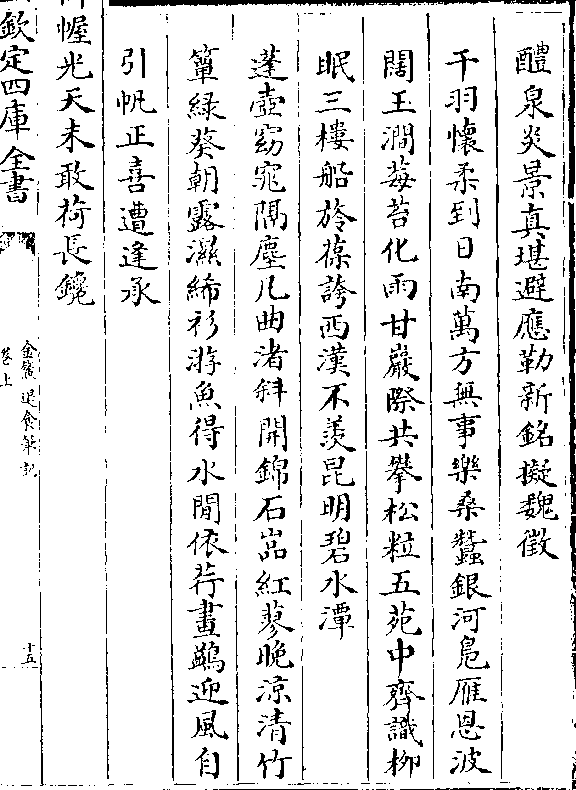 醴泉炎景真堪避應勒新銘擬魏徵
干羽懷柔到日南萬方無事樂桑蠶銀河鳬雁恩波
闊玉澗莓苔化雨甘巖際共攀松粒五苑中齊識柳
眠三樓船旍葆誇西漢不羨昆明碧水潭
蓬壺窈窕隔塵凡曲渚斜開錦石嵒紅蓼晚涼清竹
簟綠葵朝露濕絺衫游魚得水閒依荇畫鷁迎風自
引帆正喜遭逢承
幄光天未敢荷長鑱
欽定四庫全書
金鰲退食筆記
卷上
十五